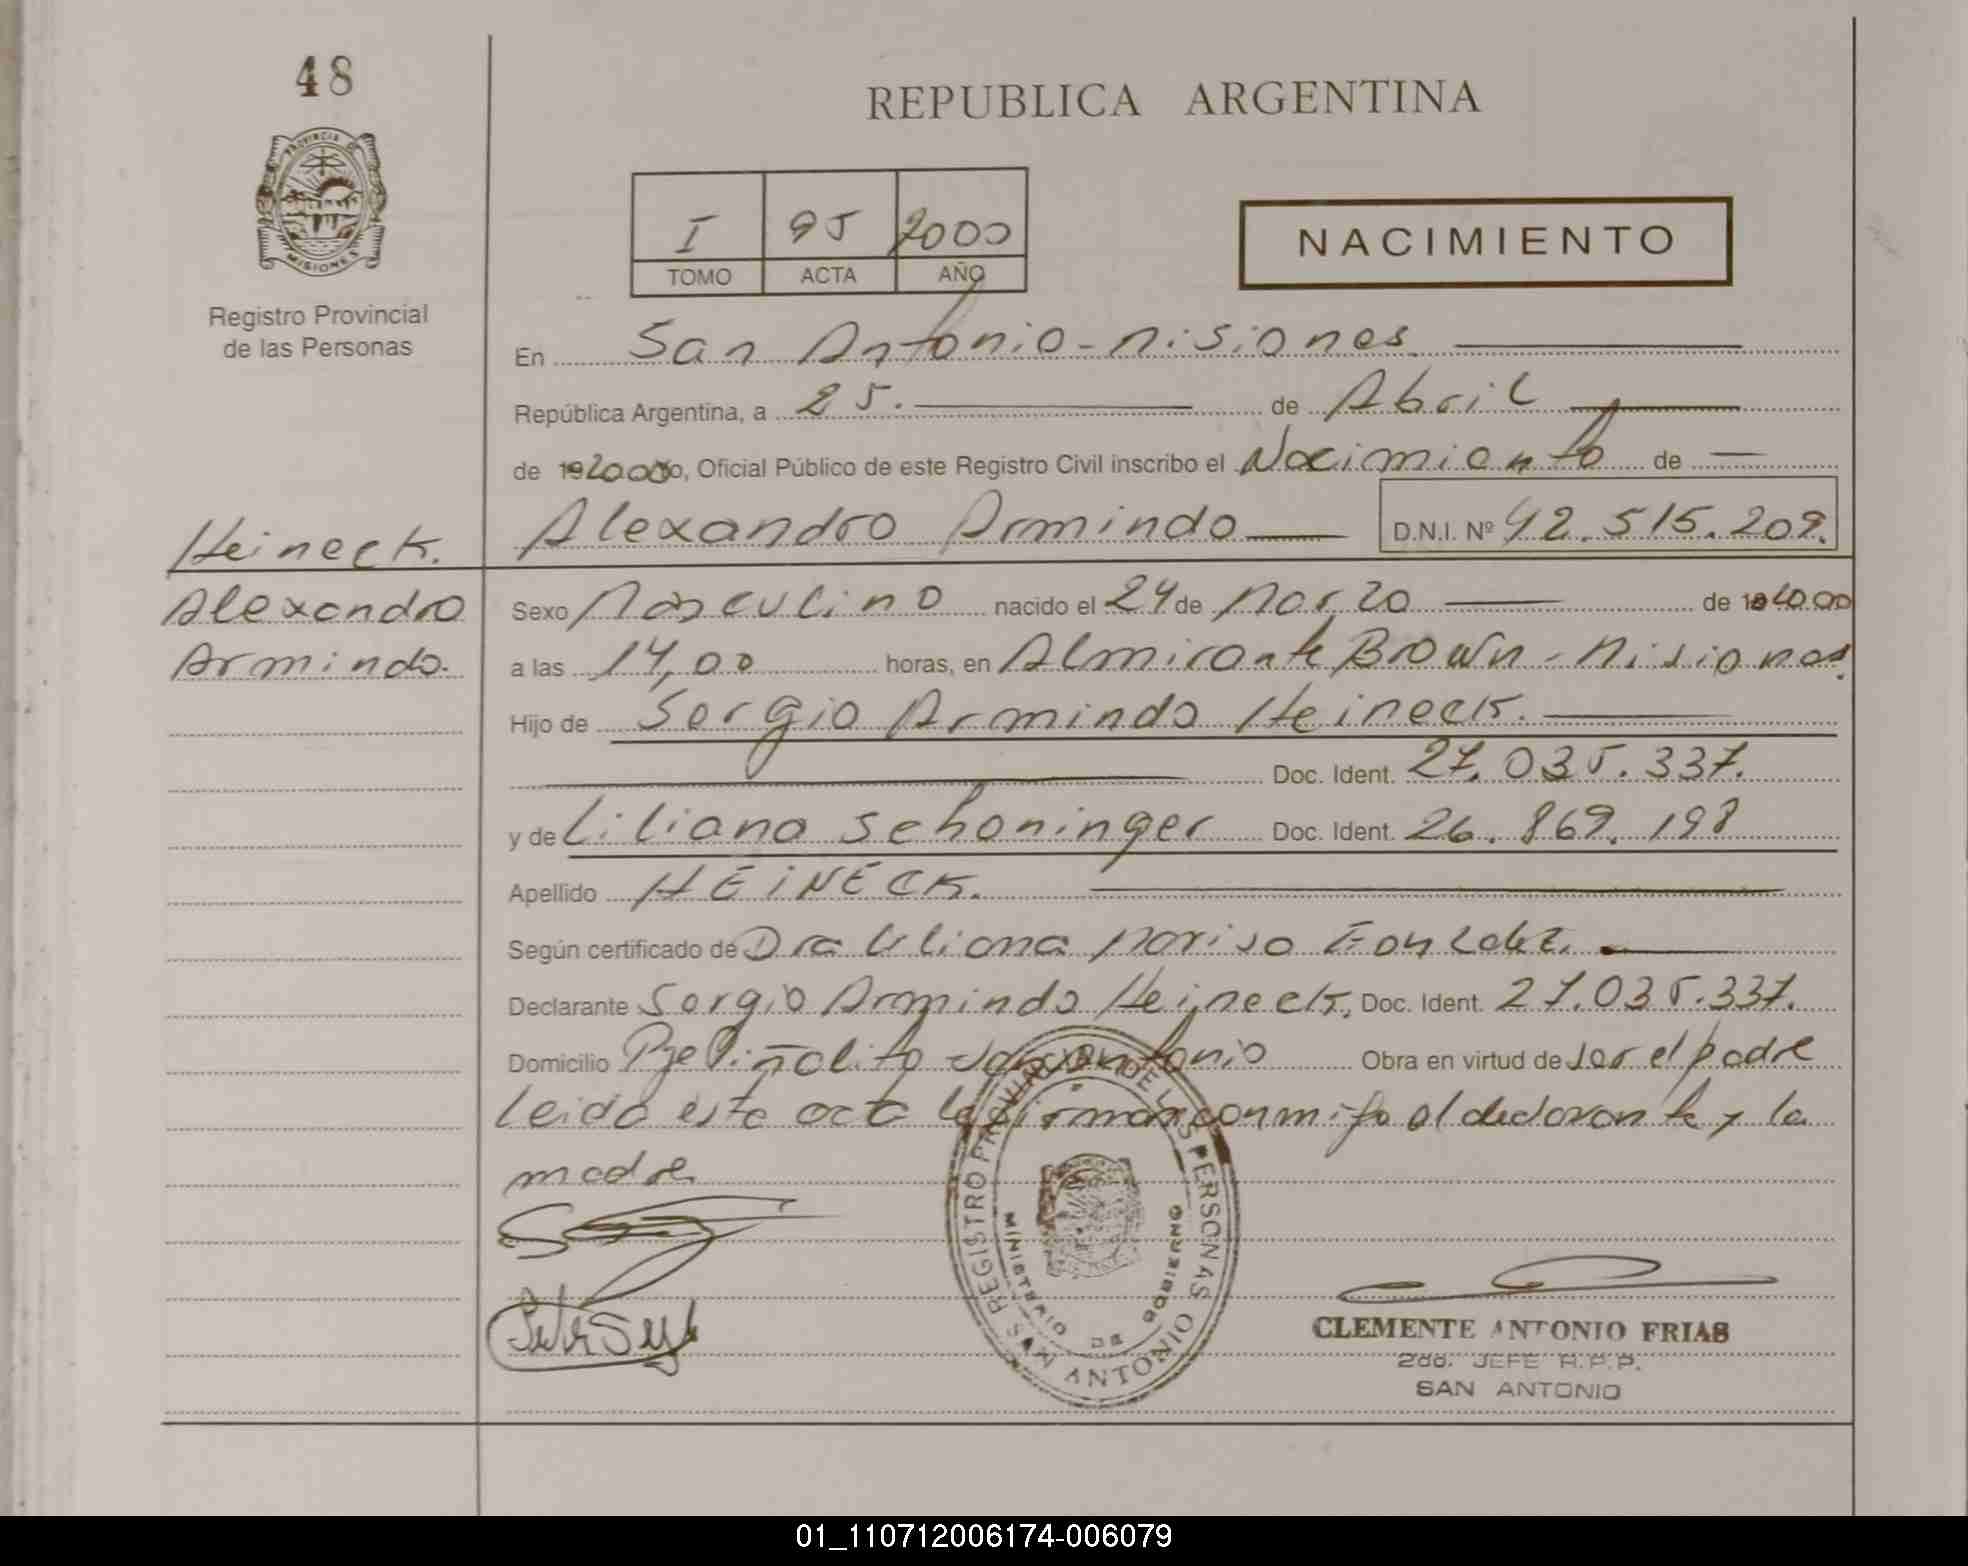 48
PROVINCIA DE
MISIONES
Registro Provincial
de las Personas
REPUBLICA ARGENTINA
I 95 2000
TOMO ACTA AÑO
NACIMIENTO
En San Antonio - Misiones
República Argentina, a 25. de Abril
de 2000, Oficial Público de este Registro Civil inscribo el Nacimiento de
Heineck.
Alexandro
Armindo.
Alexandro Armindo D.N.I. Nº 42.515.209.
Sexo Masculino nacido el 24 de Marzo de 2000
a las 14,00 horas, en Almirante Brown - Misiones.
Hijo de Sergio Armindo Heineck.
Doc. Ident. 27.035.337.
y de Liliana Schoninger Doc. Ident. 26.869.198
Apellido HEINECK.
Según certificado de Dra Liliana Marisa
Declarante Sergio Armindo Heineck, Doc. Ident. 27.035.337.
Domicilio Pje Piñalito San Antonio Obra en virtud de ser el padre
Leida este acta la firman conmigo el declarante y la
madre
REGISTRO PROVINCIAL DE LAS PERSONAS
MINISTERIO DE GOBIERNO
SAN ANTONIO
CLEMENTE ANTONIO FRIAS
2do. JEFE R.P.P.
SAN ANTONIO
01_110712006174-006079